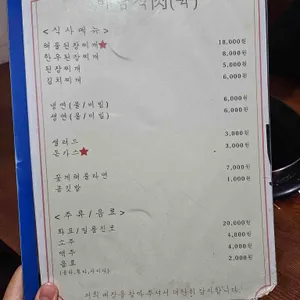 <식사메뉴>
해물된장찌개★ 18,000원
한우된장찌개 8,000원
된장찌개 5,000원
김치찌개 6,000원
냉면(물/비빔) 6,000원
생면(물/비빔) 6,000원
샐러드 3,000원
돈가스★ 3,000원
꽃게해물라면 7,000원
공깃밥 1,000원
<주류/음료>
화요/일품진로 20,000원
소주 4,000원
맥주 4,000원
음료 2,000원
저희 매장을 찾아주셔서 대단히 감사합니다.